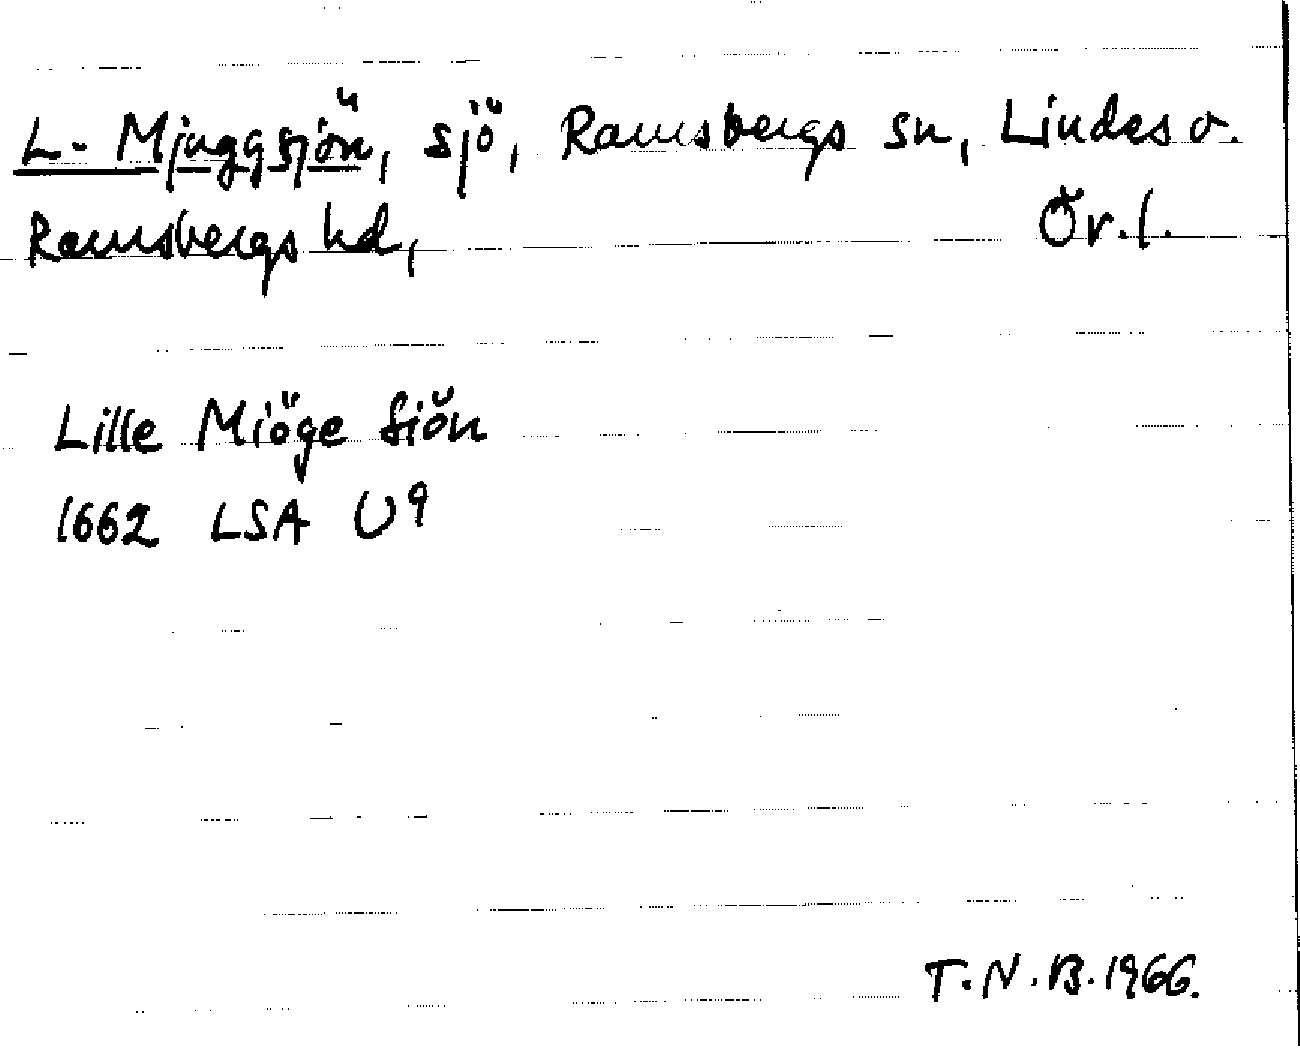 L. Mjuggsjön, sjö, Ramsbergs sn, Lindes o.
Ramsbergs hd, Ör. l.
Lille Miöge Siön
1662 LSA U9
T.N.B. 1966.